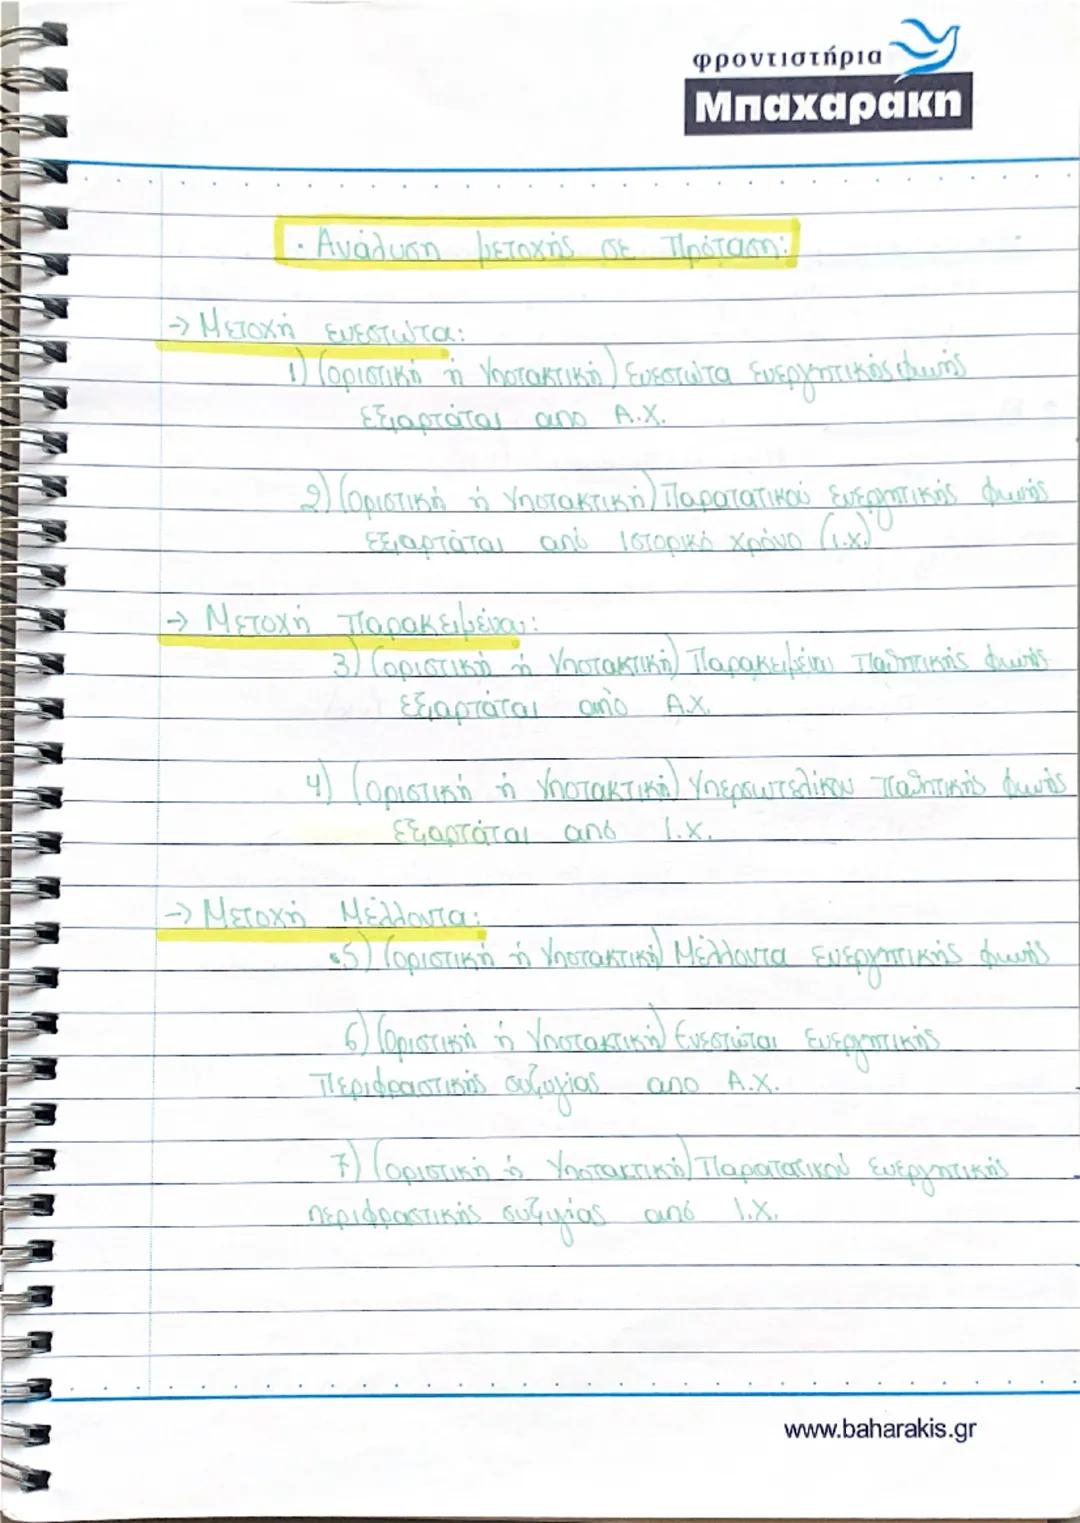 φροντιστήρια
Μπαχαράκη
· Ανάλυση μετοχής σε Πρόταση:
→ Μετοχή ενεστώτα:
1) (οριστική ή Υποτακτική) Ενεστώτα Ενεργητικής φωνής
εξαρτάται απο Α.Χ.
2) (οριστική ή Υποτακτική) Παρατατικού Ενεργητικής φωνής
εξαρτάται από Ιστορικό χρόνο (Ι.Χ.)
→ Μετοχή Παρακειμένου:
3) (οριστική ή Υποτακτική) Παρακειμένου Παθητικής φωνής
εξαρτάται από Α.Χ.
4) (οριστική ή Υποτακτική) Υπερσυντελίκου Παθητικής φωνής
εξαρτάται από Ι.Χ.
→ Μετοχή Μέλλοντα:
5) (οριστική ή Υποτακτική) Μέλλοντα ενεργητικής φωνής
6) (Οριστική ή Υποτακτική) Ενεστώτα Ενεργητικής
Περιφραστικής συζυγίας απο Α.Χ.
7) (οριστική ή Υποτακτική) Παρατατικού Ενεργητικής
περιφραστικής συζυγίας από Ι.Χ.
www.baharakis.gr